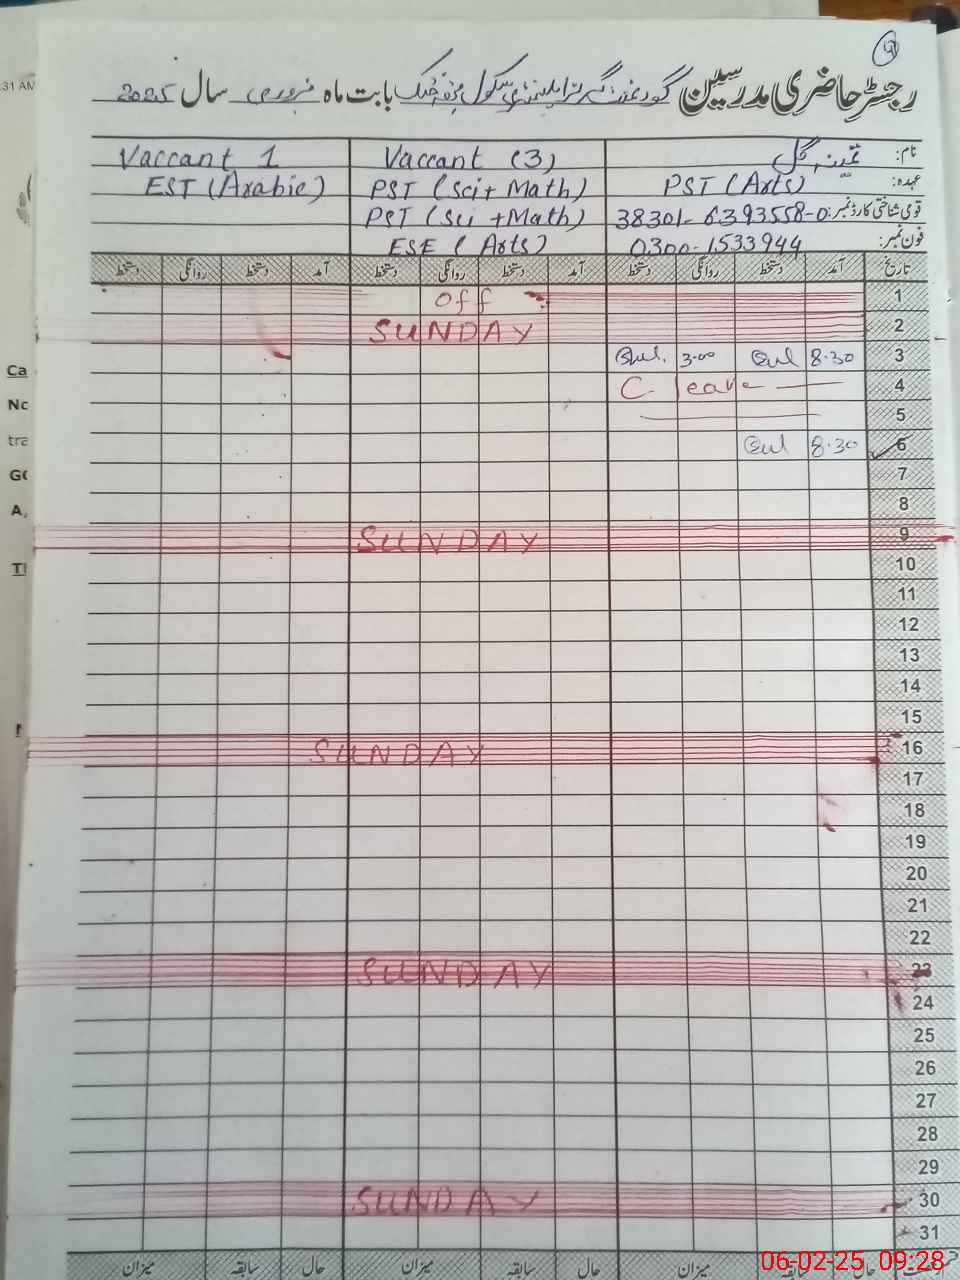 رجسٹر حاضری مدرسین گورنمنٹ گرلز ایلیمنٹری سکول بابت ماہ فروری سال 2025
نام: ثمینہ گل Vaccant (3) Vaccant 1
عہدہ: PST (Arts) PST (Sci + Math) EST (Arabic)
قومی شناختی کارڈ نمبر: 38301-6393558-0 PST (Sci + Math)
فون نمبر: 0300-1533944 ESE (Arts)
تاریخ آمد دستخط روانگی دستخط آمد دستخط روانگی دستخط آمد دستخط روانگی دستخط
1 off
2 SUNDAY
3 8.30 Gul 3.00 Gul
4 C leave
5
6 8.30 Gul
7
8
9 SUNDAY
10
11
12
13
14
15
16 SUNDAY
17
18
19
20
21
22
23 SUNDAY
24
25
26
27
28
29
30 SUNDAY
31
حال سابقہ میزان حال سابقہ میزان حال سابقہ میزان
06-02-25 09:28
31 AM
Ca
No
tra